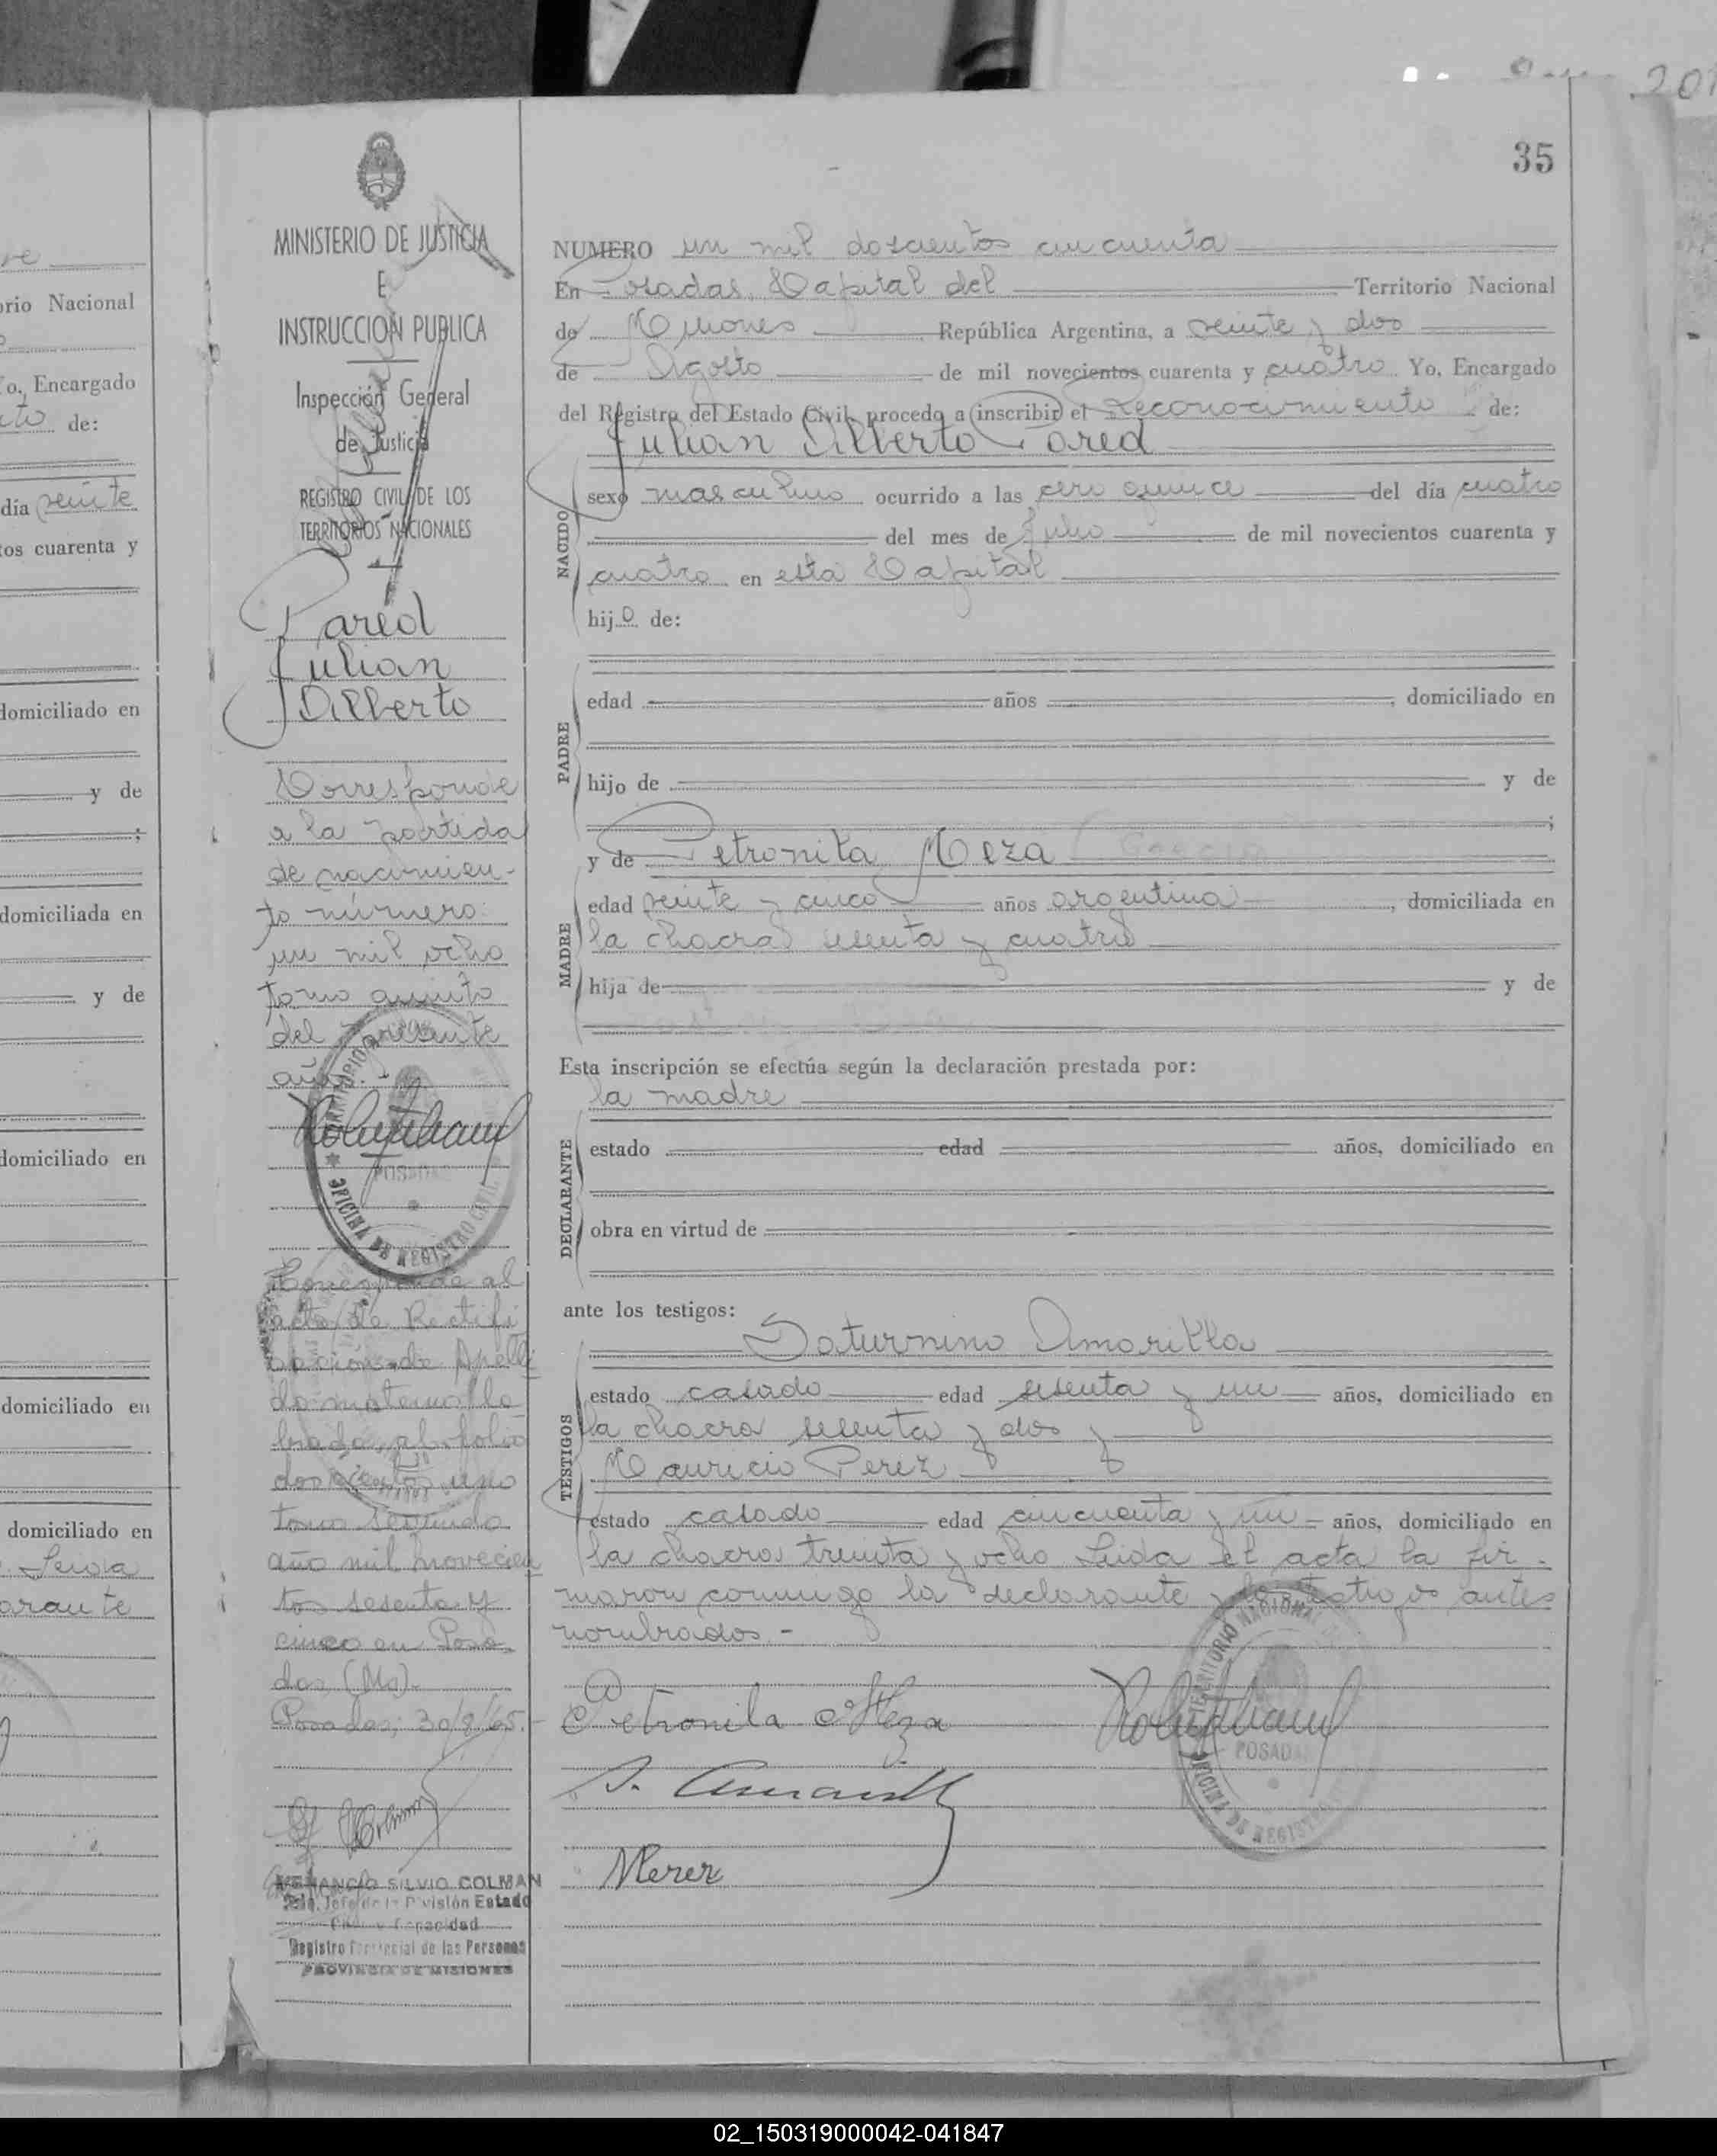 35
MINISTERIO DE JUSTICIA
E
INSTRUCCION PUBLICA
Inspección General
de Justicia
REGISTRO CIVIL DE LOS
TERRITORIOS NACIONALES
Pared
Julian
Dilberto
Corresponde
a la partida
de nacimien-
to número
un mil ocho
tomo quinto
del presente
año.-
OFICINA DE REGISTRO CIVIL
POSADAS
Corresponde al
acta de Rectifi
cación de Apelli
do materno la
brada al folio
doscientos uno
tomo segundo
año mil novecien
tos sesenta y
cinco en Posa
das (Ms).
Posadas, 30/8/65.-
VENANCIO SILVIO COLMAN
Jefe de la División Estado
Civil y Capacidad
Registro Provincial de las Personas
PROVINCIA DE MISIONES
NUMERO un mil doscientos cincuenta
En Posadas, Capital del Territorio Nacional
de Misiones República Argentina, a veinte y dos
de Agosto de mil novecientos cuarenta y cuatro Yo, Encargado
del Registro del Estado Civil, procedo a inscribir el reconocimiento de:
Julian Dilberto Pared
NACIDO
sexo masculino ocurrido a las cero quince del día cuatro
del mes de Julio de mil novecientos cuarenta y
cuatro en esta Capital
hijo de:
PADRE
edad años , domiciliado en
hijo de y de
;
MADRE
y de Petronila Meza
edad veinte y cinco años argentina , domiciliada en
la chacra sesenta y cuatro
hija de y de
Esta inscripción se efectúa según la declaración prestada por:
la madre
DECLARANTE
estado edad años, domiciliado en
obra en virtud de
ante los testigos:
TESTIGOS
Saturnino Amarilla
estado casado edad sesenta y un años, domiciliado en
la chacra sesenta y dos y
Mauricio Perez
estado casado edad cincuenta y un años, domiciliado en
la chacra treinta y ocho Leida el acta la fir-
maron conmigo la declarante y los testigos antes
nombrados.-
Petronila Meza
S. Amarilla
MPerez
TERRITORIO NACIONAL
POSADAS
OFICINA DE REGISTRO
02_150319000042-041847